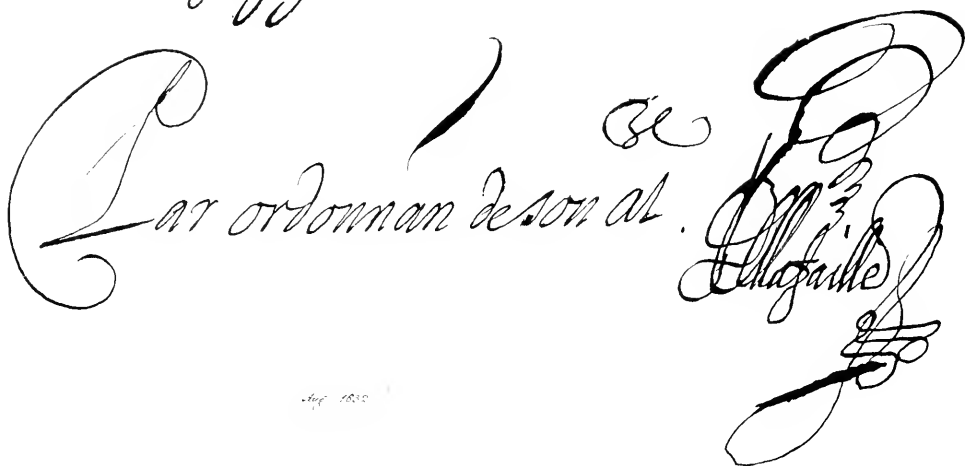 Par ordonnan de son al se.
Dellafaille
Aug 1632